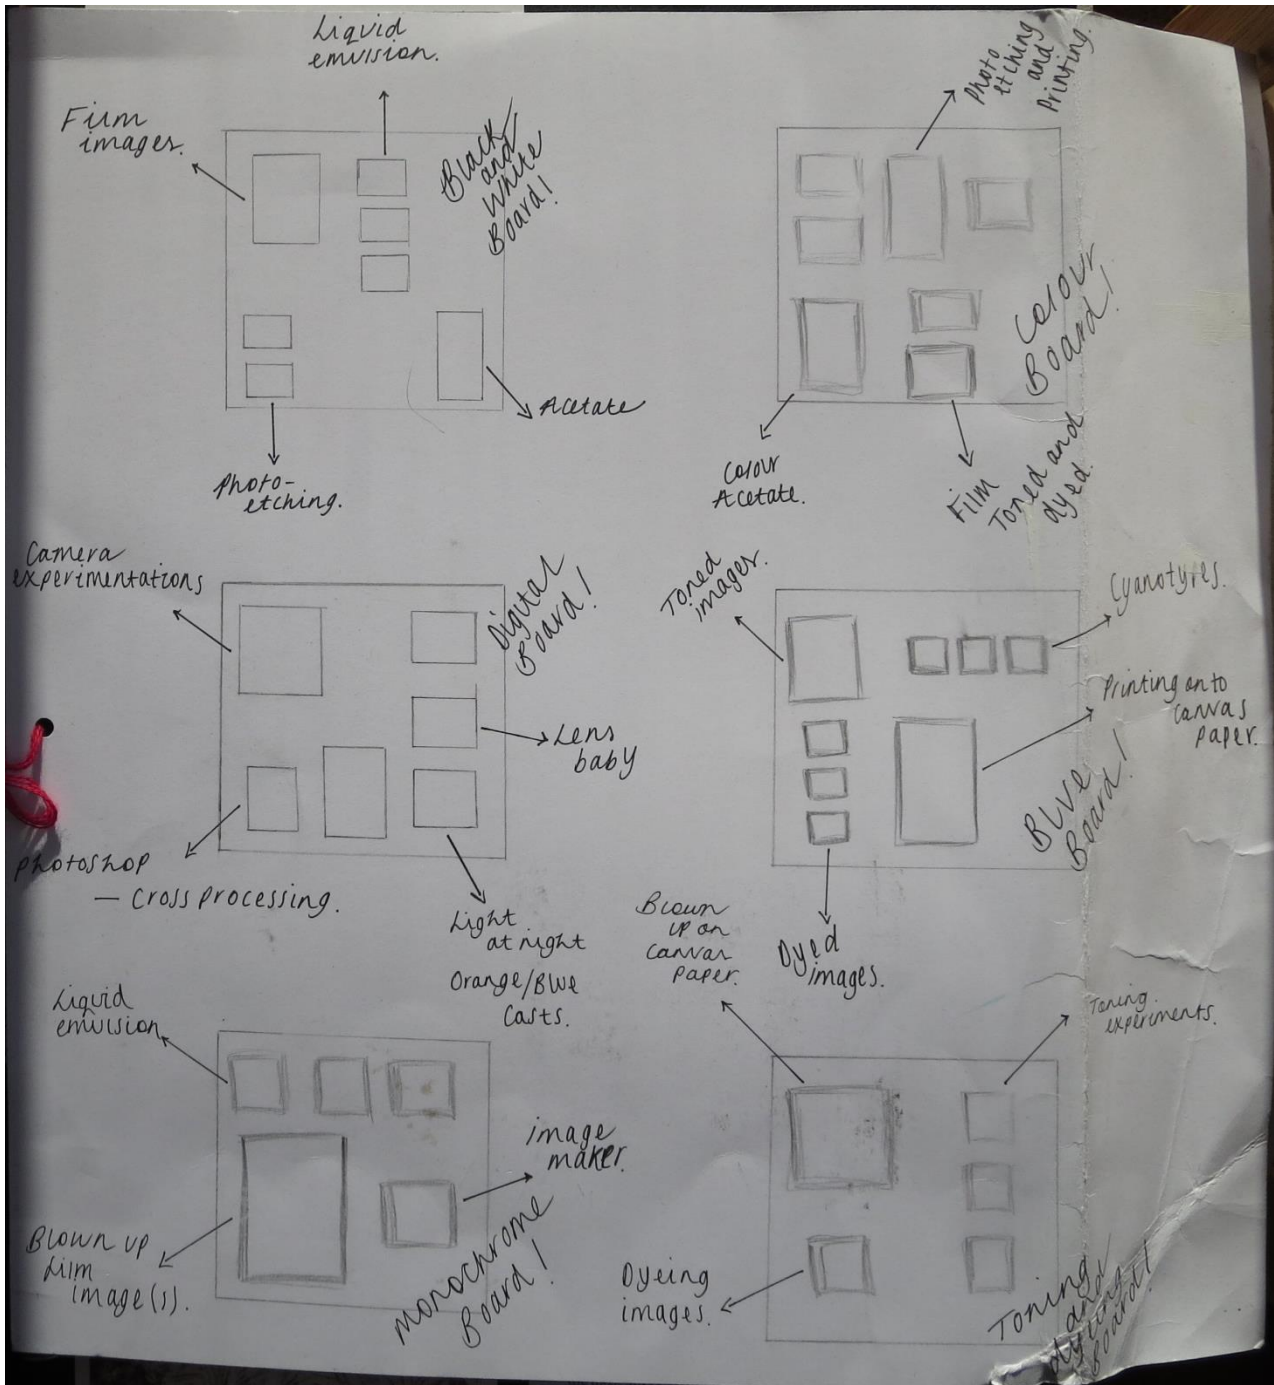 Liquid
emulsion.
Film
images.
Black
and
White
Board!
Acetate
Photo-
etching.
Photo
etching
and
Printing.
Colour
Board!
Colour
Acetate.
Film
Toned and
dyed.
Camera
experimentations
Digital
Board!
Lens
baby
Photoshop
— Cross processing.
Light
at night
Orange/Blue
Casts.
Toned
images.
Cyanotypes.
Printing onto
canvas
paper.
Blue
Board!
Dyed
images.
Liquid
emulsion
image
maker.
Blown up
film
image(s).
Monochrome
Board!
Blown
up on
canvas
paper.
Toning
experiments.
Dyeing
images.
Toning
and
dying
Board!